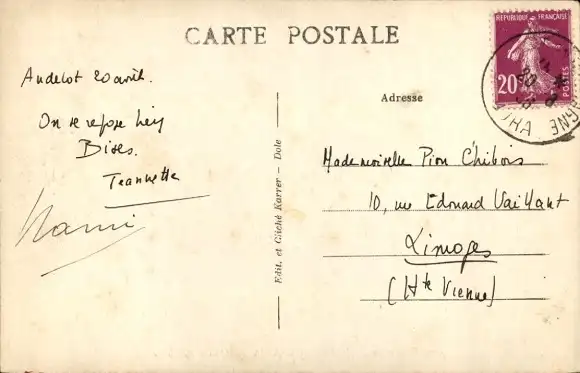 CARTE POSTALE
REPUBLIQUE FRANÇAISE
20
POSTES
Andelot 20 avril.
On se repose bien
Bises.
Jeannette
Adresse
Mademoiselle Pion Chibois
10, rue Edouard Vaillant
Limoges
(Hte Vienne)
Edit. et Cliché Karrer - Dole